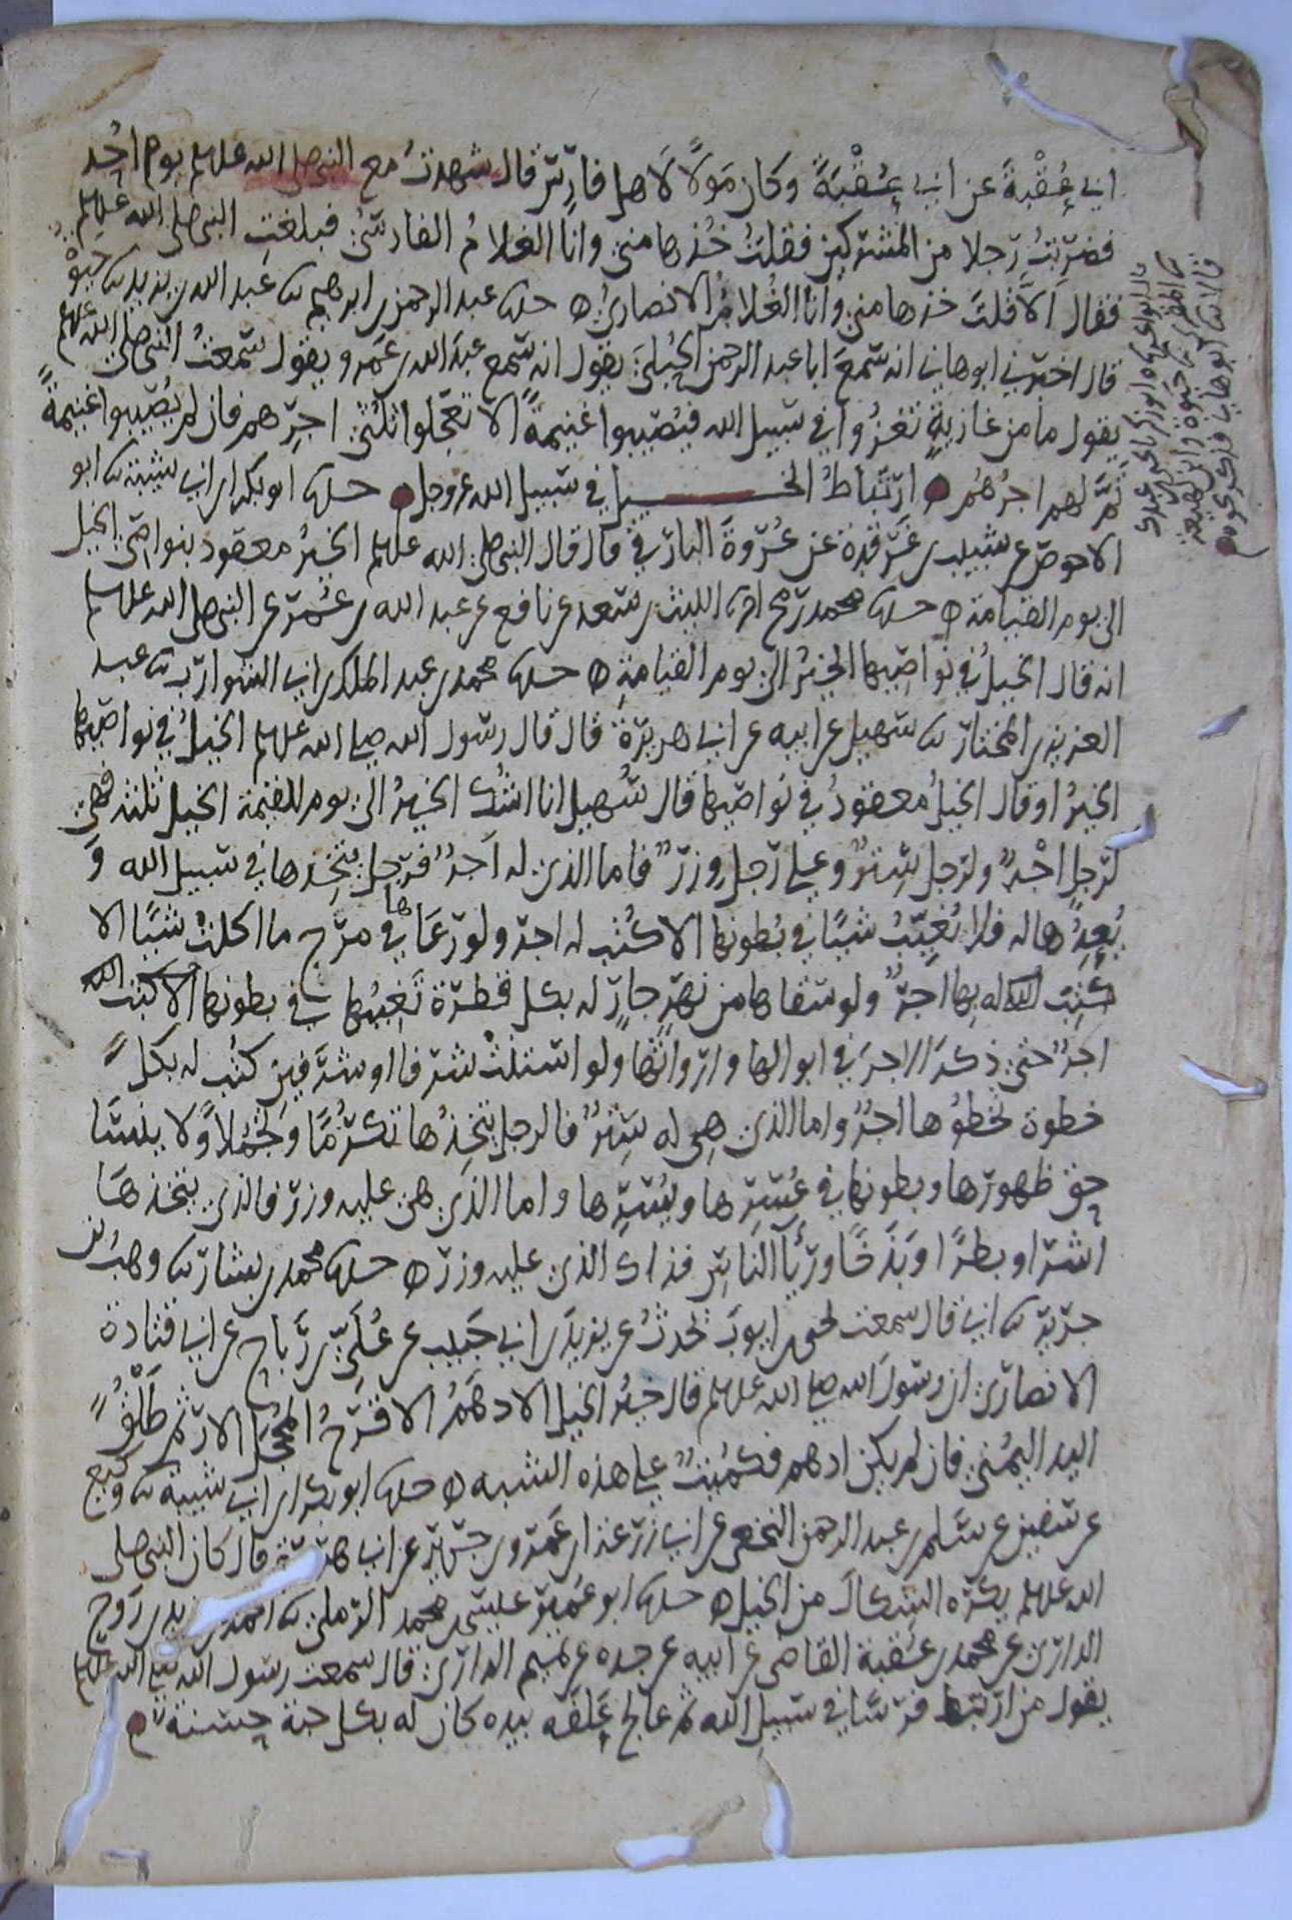 ابي عُقْبةَ عن ابي عُقْبَةَ وكان مَولًا لاهل فارس قال شهدتُ مع النبي صلى الله علىىلم يوم اُحُد
فضربتُ رجلا من المشركين فقلتُ خُذها مني وانا الغلامُ الفارسيُّ فبلغتِ النبي صلى الله علىىلم
فقال اَلَا قلتَ خذها مني وانا الغلامُ الانصاريُّ ه حدثنا عبد الرحمن بن ابرهيم نا عبد الله بن يزيد نا حيوةُ
قال اخبرني ابو هاني انه سَمِعَ ابا عبد الرحمن الحُبُليَّ يقول انه سمع عبدَ الله بن عَمرو يقول سمعتُ النبي صلى الله علىىلم
يقول ما من غازيةٍ تغزُوا في سبيل الله فيُصيبوا غنيمةً الا تعجّلوا ثُلُثي اجرِهم فان لم يُصيبوا غنيمةً
تمَّ لهم اجرُهُم ارتباطُ الخيل في سبيل الله عز وجل حدثنا ابو بكر بن ابي شيبة نا ابو
الاحوص عن شبيب بن غرقدة عن عُروةَ البارقي قال قال النبي صلى الله علىىلم الخيرُ معقود بنواصي الخيل
الى يوم القيامة ه حدثنا محمد بن رمح انا الليث بن سعد عن نافع عن عبد الله بن عُمر عن النبي صلى الله علىىلم
انه قال الخيلُ في نواصيها الخيرُ الى يوم القيامةِ ه حدثنا محمد بن عبد الملك بن ابي الشوارب نا عبد
العزيز بن المختار نا سهيل عن ابيه عن ابي هريرة قال قال رسول الله صلى الله علىىلم الخيلُ في نواصيها
الخيرُ او قال الخيلُ معقودٌ في نواصيها قال سُهيل انا اشُك الخيرُ الى يوم القيمة الخيل ثلثة فهي
لرجل اجْرٌ ولرجل سِترٌ وعلى رجل وزرٌ فاما الذي له اجرٌ فرجل يتخِذها في سبيل الله وَ
يُعِدُّها له فلا تُغيِّبُ شيئًا في بطونها الا كُتب له اجر ولو رَعَاها في مرج ما اكلتْ شيئًا الا
كُتِبَ له بها اجرٌ ولو سقاها من نهرٍ جارٍ له بكل قطرة تُغيبُها في بطونها الا كتب الله
اجرٌ حتى ذكرَ الاجرَ في ابوالها وارواثها ولو استنتْ شرفا او شرفين كتب له بكلِّ
خطوة تخطوُها اجرٌ واما الذي هي له سِترٌ فالرجل يتخِذُها تكرُّمًا وتجمُّلاً ولا ينسَا
حق ظهورها وبطونها في عُسرِها ويُسرِها واما الذي هي عليه وزر فالذي يتخذها
اشرًا وبطرًا وبَذَخًا ورئآ الناس فذاك الذي عليه وزر ه حدثنا محمد بن بشار نا وهبُ بن
جرير نا ابي قال سمعت يحيى بن ايوبَ يُحدثُ عن يزيدَ بن ابي حبيب عن عُلَيّ بن رَباح عن ابي قتادة
الانصاري ان رسولَ الله صلى الله علىىلم قال خيرُ الخيل الادهَمُ الاقرحُ المُحجَّلُ الارثم طَلْقُ
اليد اليُمنى فان لم يكن ادهم فكُميتٌ على هذه الشبه ه حدثنا ابو بكر بن ابي شيبة نا وكيع
عن سفين عن سَلم بن عبد الرحمن النخعي عن ابي زرعة بن عَمرو بن جرير عن ابي هريرة قال كان النبي صلى
الله علىىلم يكره الشِكالَ من الخيل ه حدثنا ابو عُمير عيسى بن محمد الرملي نا احمد بن يزيد بن روح
الداري عن محمد بن عُقبة القاضي عن ابيه عن جده عن تميم الداري قال سمعت رسول الله صلى الله علىىلم
يقول من ارتبط فرسًا في سبيل الله ثم عالج عَلَفَه بيده كان له بكل حبة حسنة